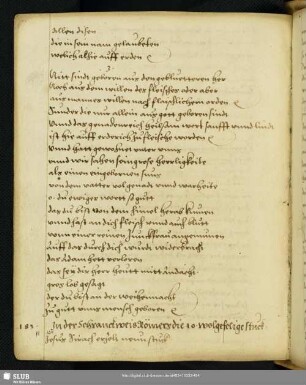 allen disen
die in sein nam gelaubeten
welich alhie auff erden
Nitt sindt geboren aus den gebluetteren her
Noch aus dem willen des fleisches oder aber
aus mannes willen nach flaischlichem orden
Sunder die nur allein aus gott geboren sindt
Unnd das genadenreich heilsam wort sanfft unnd lindt
ist hie auff erdtreich zu fleische worden
Unnd hatt gewonet unter uns
unnd wir sahen sein grose herrligkeite
als eines eingebornen suns
von dem vatter vol genadt unnd warheite
o du ewiges wort so gutt
das du bist von dem himel herab kumen
unnd hast an dich fleisch unnd auch blutt
von einer reinen junckfrau angenumen
auff das durch dich wurdt widerbracht
das Adam hett verloren
das sey dir herr heintt mitt andacht
gros lob gesagt
der du bist an der weihennacht
zu gutt uns mensch geboren
183
In der Schranckweis Romers die 10 wolgeselige stuck
Jesus Sirach erzelt neun stuck